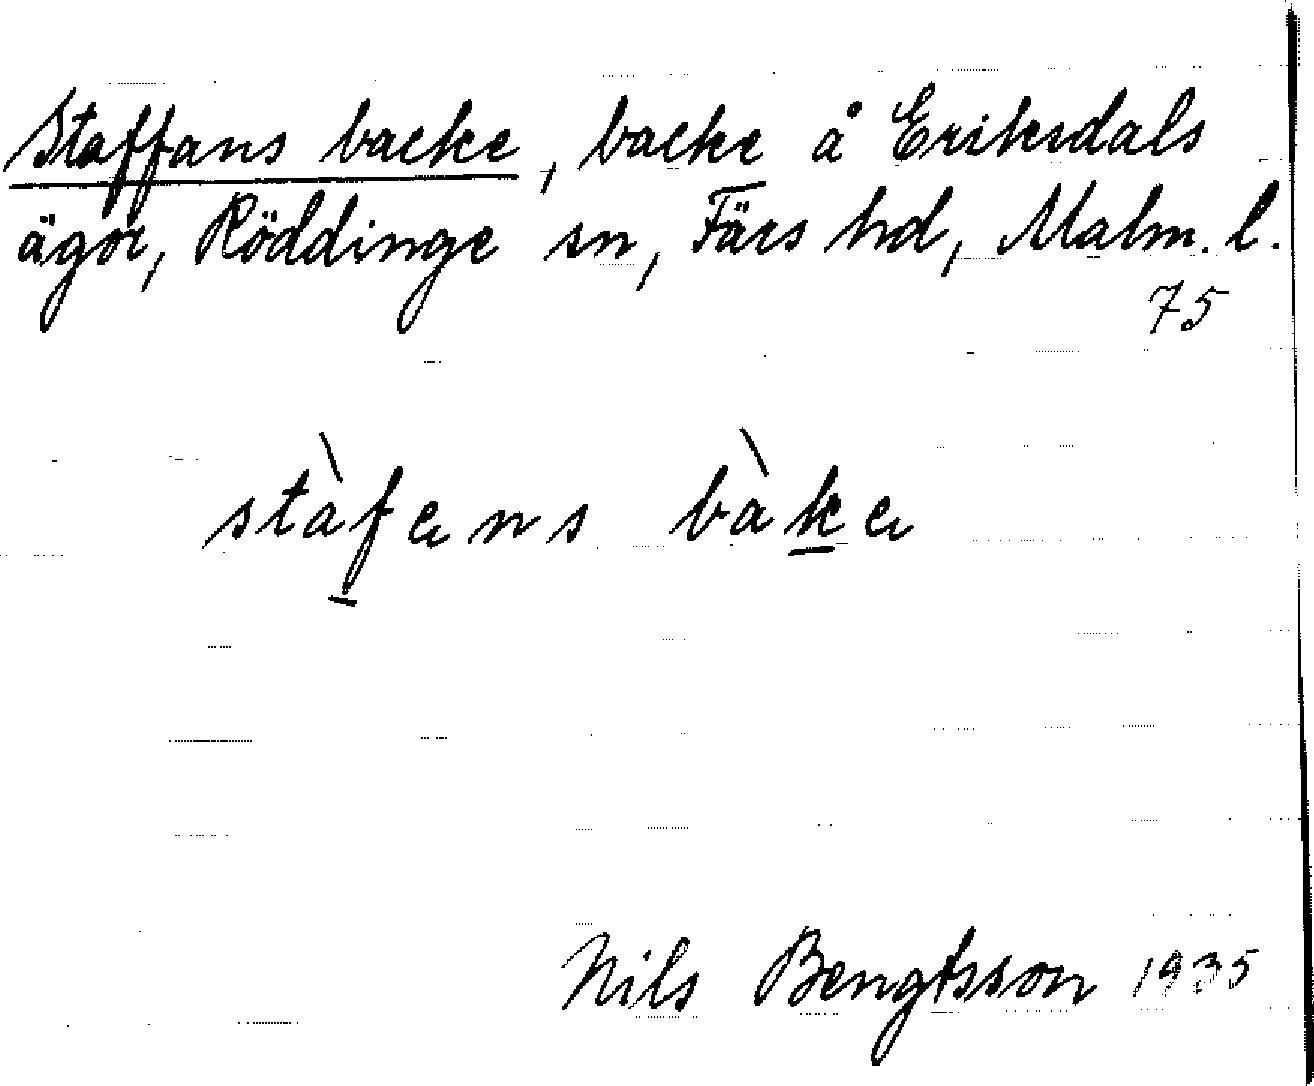 Staffans backe, backe å Eriksdals
ägor, Röddinge sn, Färs hd, Malm. l.
75
stàfens bàke
Nils Bengtsson 1935